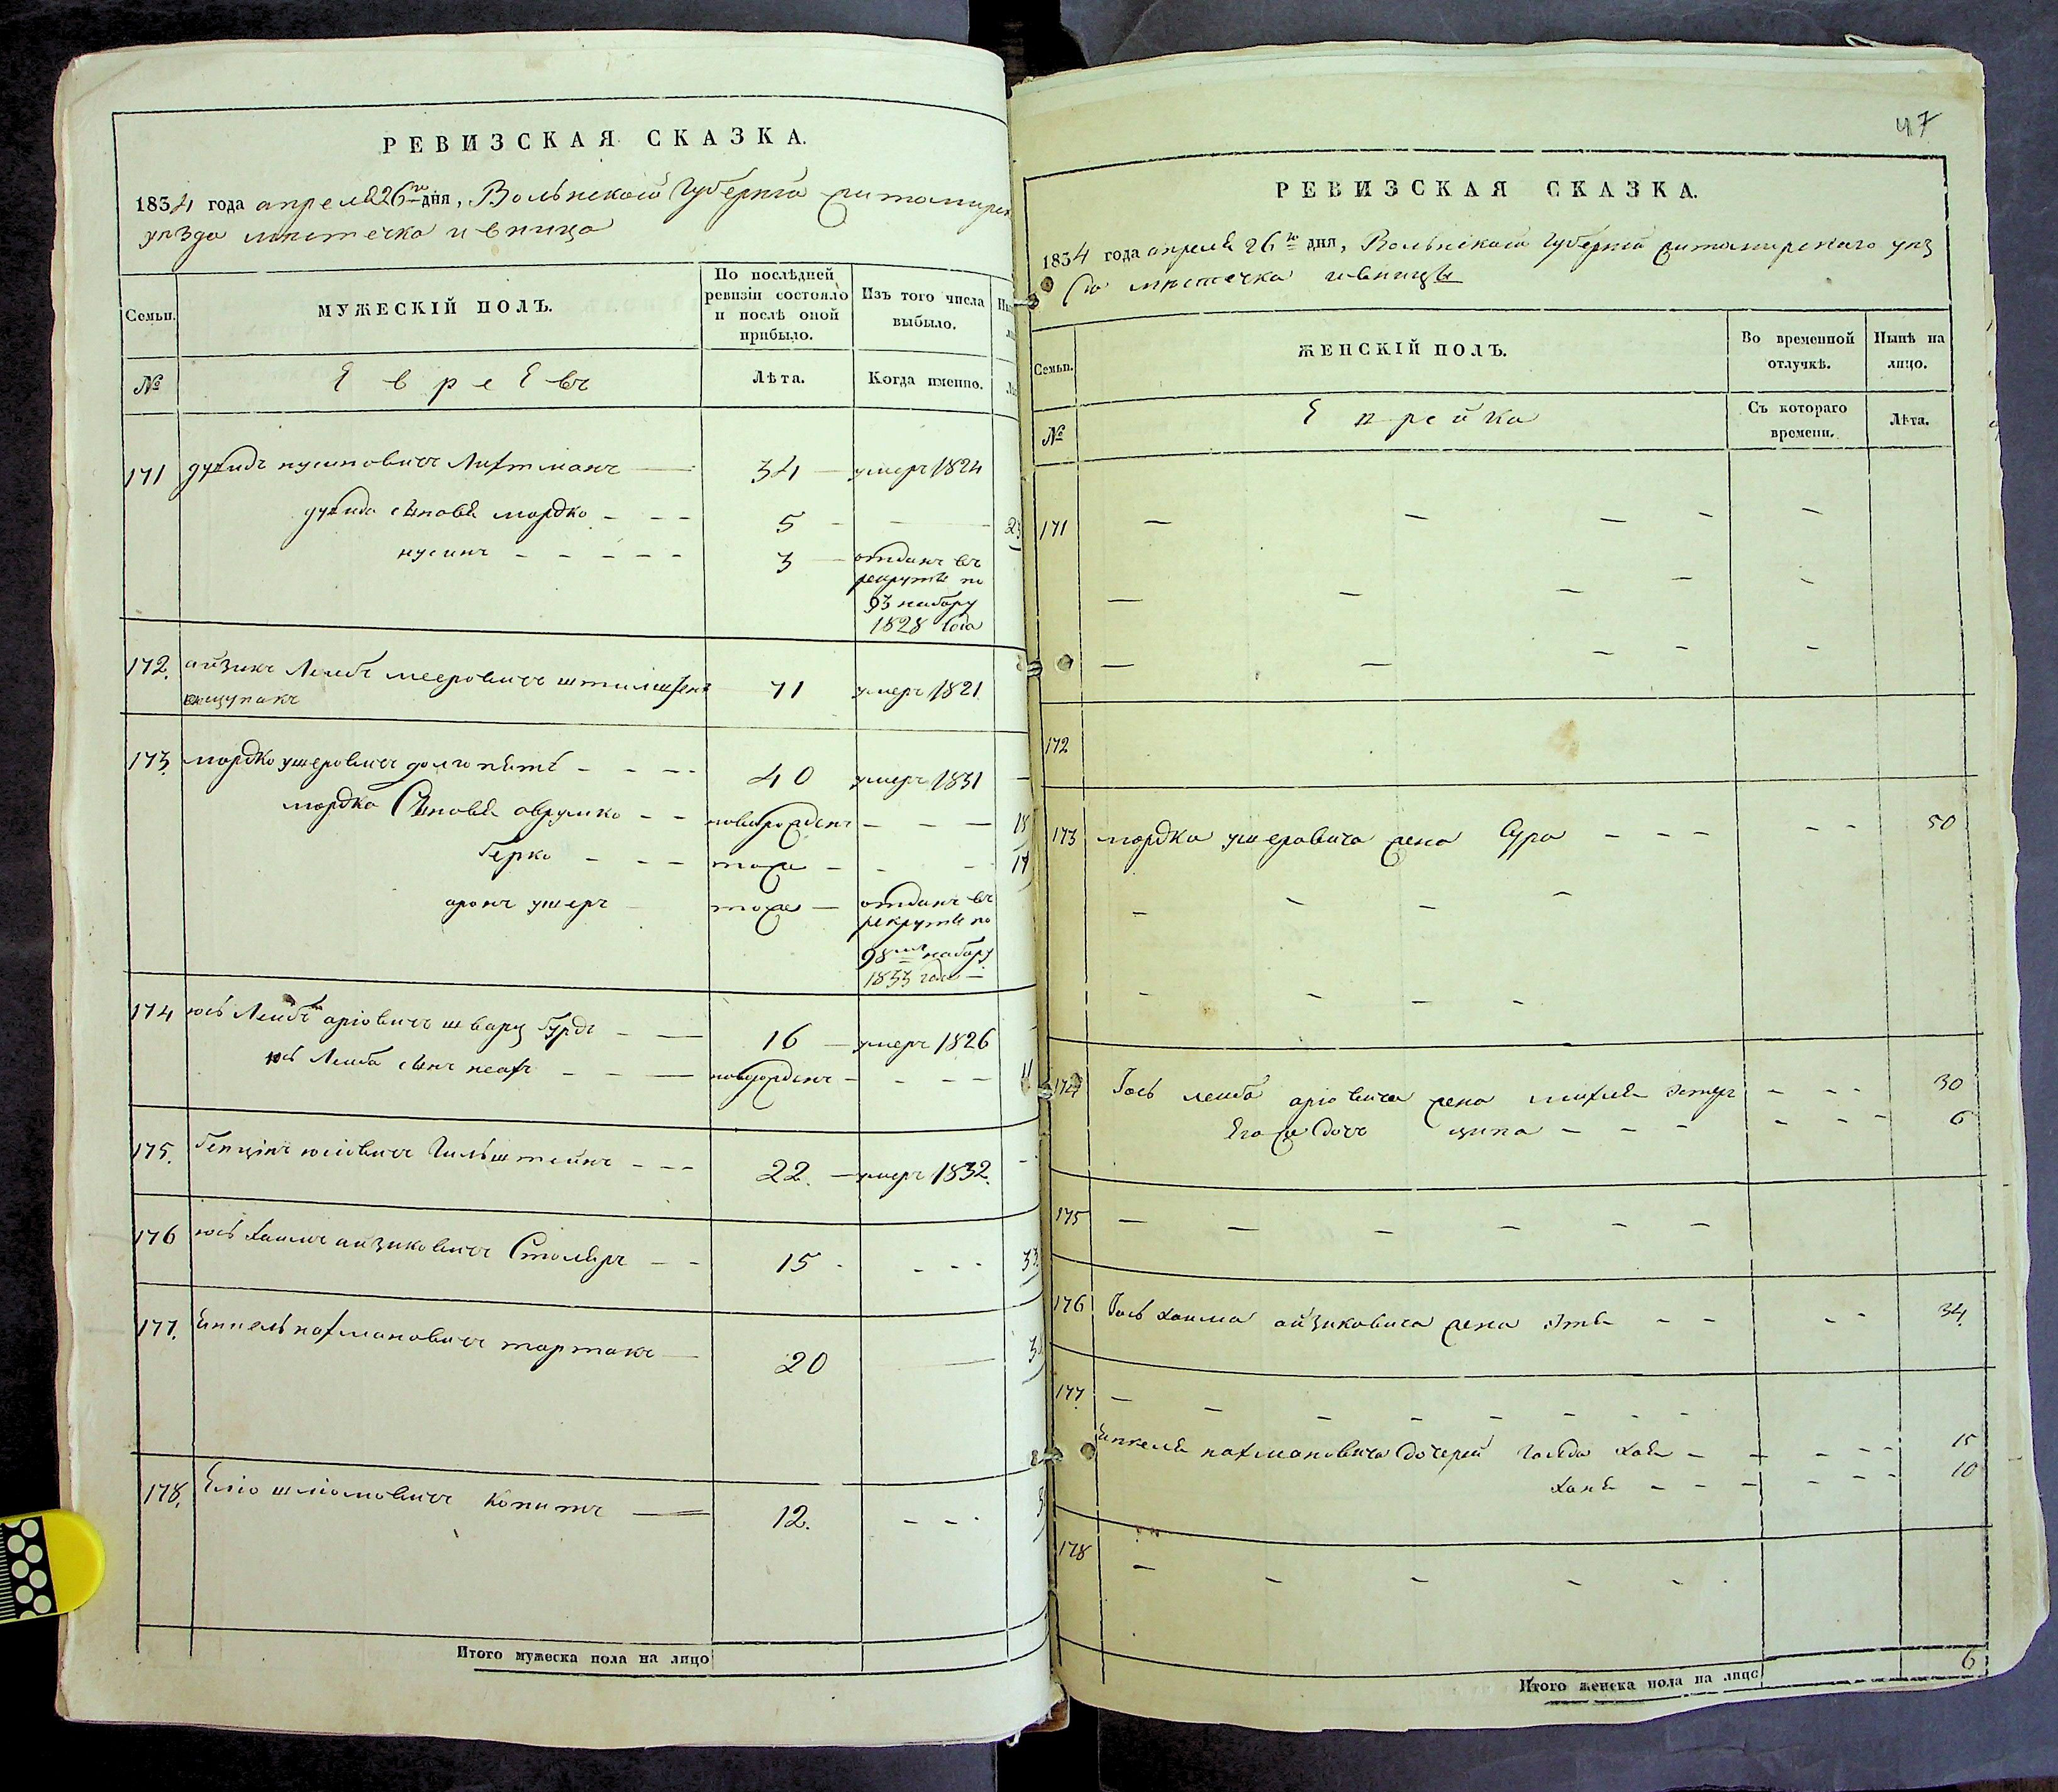 РЕВИЗСКАЯ СКАЗКА.
1834 года апреля 26го дня, Волынской Губернiи житомирск
уезда местечка ивница
Семьи.
МУЖЕСКIЙ ПОЛЪ.
По послѣдней
ревизiи состояло
и послѣ оной
прибыло.
Изъ того числа
выбыло.
№
Евреевъ
Лѣта.
Когда именно.
171 нусиновичъ Лихтманъ — 34 — умеръ 1824
сыновя мордко - - - 5 - —
нусинъ - - - - - 3 — отданъ въ
рекруты по
93 набору
1828 года
172. айзикъ Лейбъ мееровичъ 71 умеръ 1821
173. мордко ушеровичъ - - - 40 умеръ 1831
мордка Сыновя аврумко - - новорожденъ - - - 18
берко - - - тоже - - -
аронъ ушеръ - тоже — отданъ въ
рекруты по
98му набору
1833 года —
174 юсь Лейбъ арiовичъ шварц - — 16 — умеръ 1826
юсь Лейба сынъ - - — новорожденъ - - - - 11
175. бенцiнъ юсiовичъ Гильштейнъ - - - 22. — умеръ 1832.
176 юсь хаимъ айзиковичъ Столяръ - - 15 - - - - 33
177. Янкель нахмановичъ тартакъ — 20 —
178. Елiо шлiомовичъ Копитъ — 12. - - -
Итого мужеска пола на лицо
47
РЕВИЗСКАЯ СКАЗКА.
1834 года апреля 26го дня, Волынской Губернiи житомирского уез
да местечка ивницы
Семьи.
ЖЕНСКIЙ ПОЛЪ.
Во временной
отлучкѣ.
Нынѣ на
лицо.
№
Еврейка
Съ котораго
времени.
Лѣта.
171 — — — - -
— — — — -
— — - - -
172
173 мордка ушеровича жена Сура - - - - - 50
- - - -
- - - -
174 Iось лейба арiовича жена михля эстеръ - - - 30
Его же дочь ципа - - - - - - 6
175 — — - - - -
176 Iось хаима айзиковича жена - - - - 34
177. — - - - - - - -
Янкеля нахмановича дочерей хая - - - - - 15
хана - - - - - - 10
178
— - - - - -
Итого женска пола на лицо 6